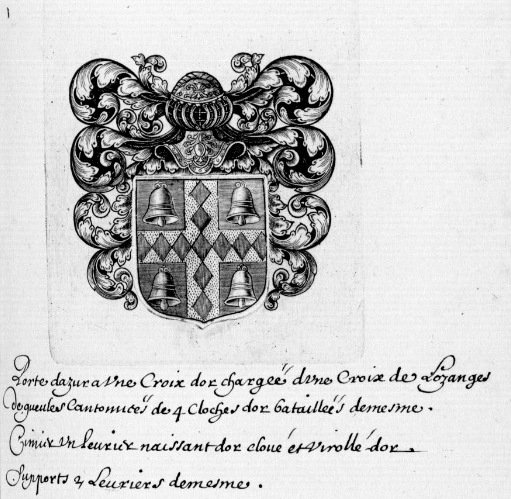 1
Porte dazur a vne Croix dor chargeé dvne Croix de Lozanges
de gueules Cantonnceé de 4 Cloches dor batailleés demesme.
Cimier vn leurier naissant dor cloué et virollé dor.
Supports 2 Leuriers demesme.